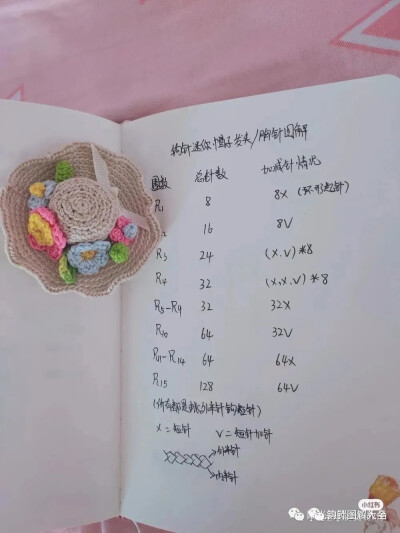 钩针迷你帽子发夹/胸针图解
圈数 总针数 加减针情况
R1 8 8X (环形起针)
2 16 8V
R3 24 (X.V)*8
R4 32 (X.X.V)*8
R5-R9 32 32X
R10 64 32V
R11-R14 64 64X
R15 128 64V
(所有都是挑外半针钩短针)
X=短针 V=短针加针
外半针
内半针
小红书